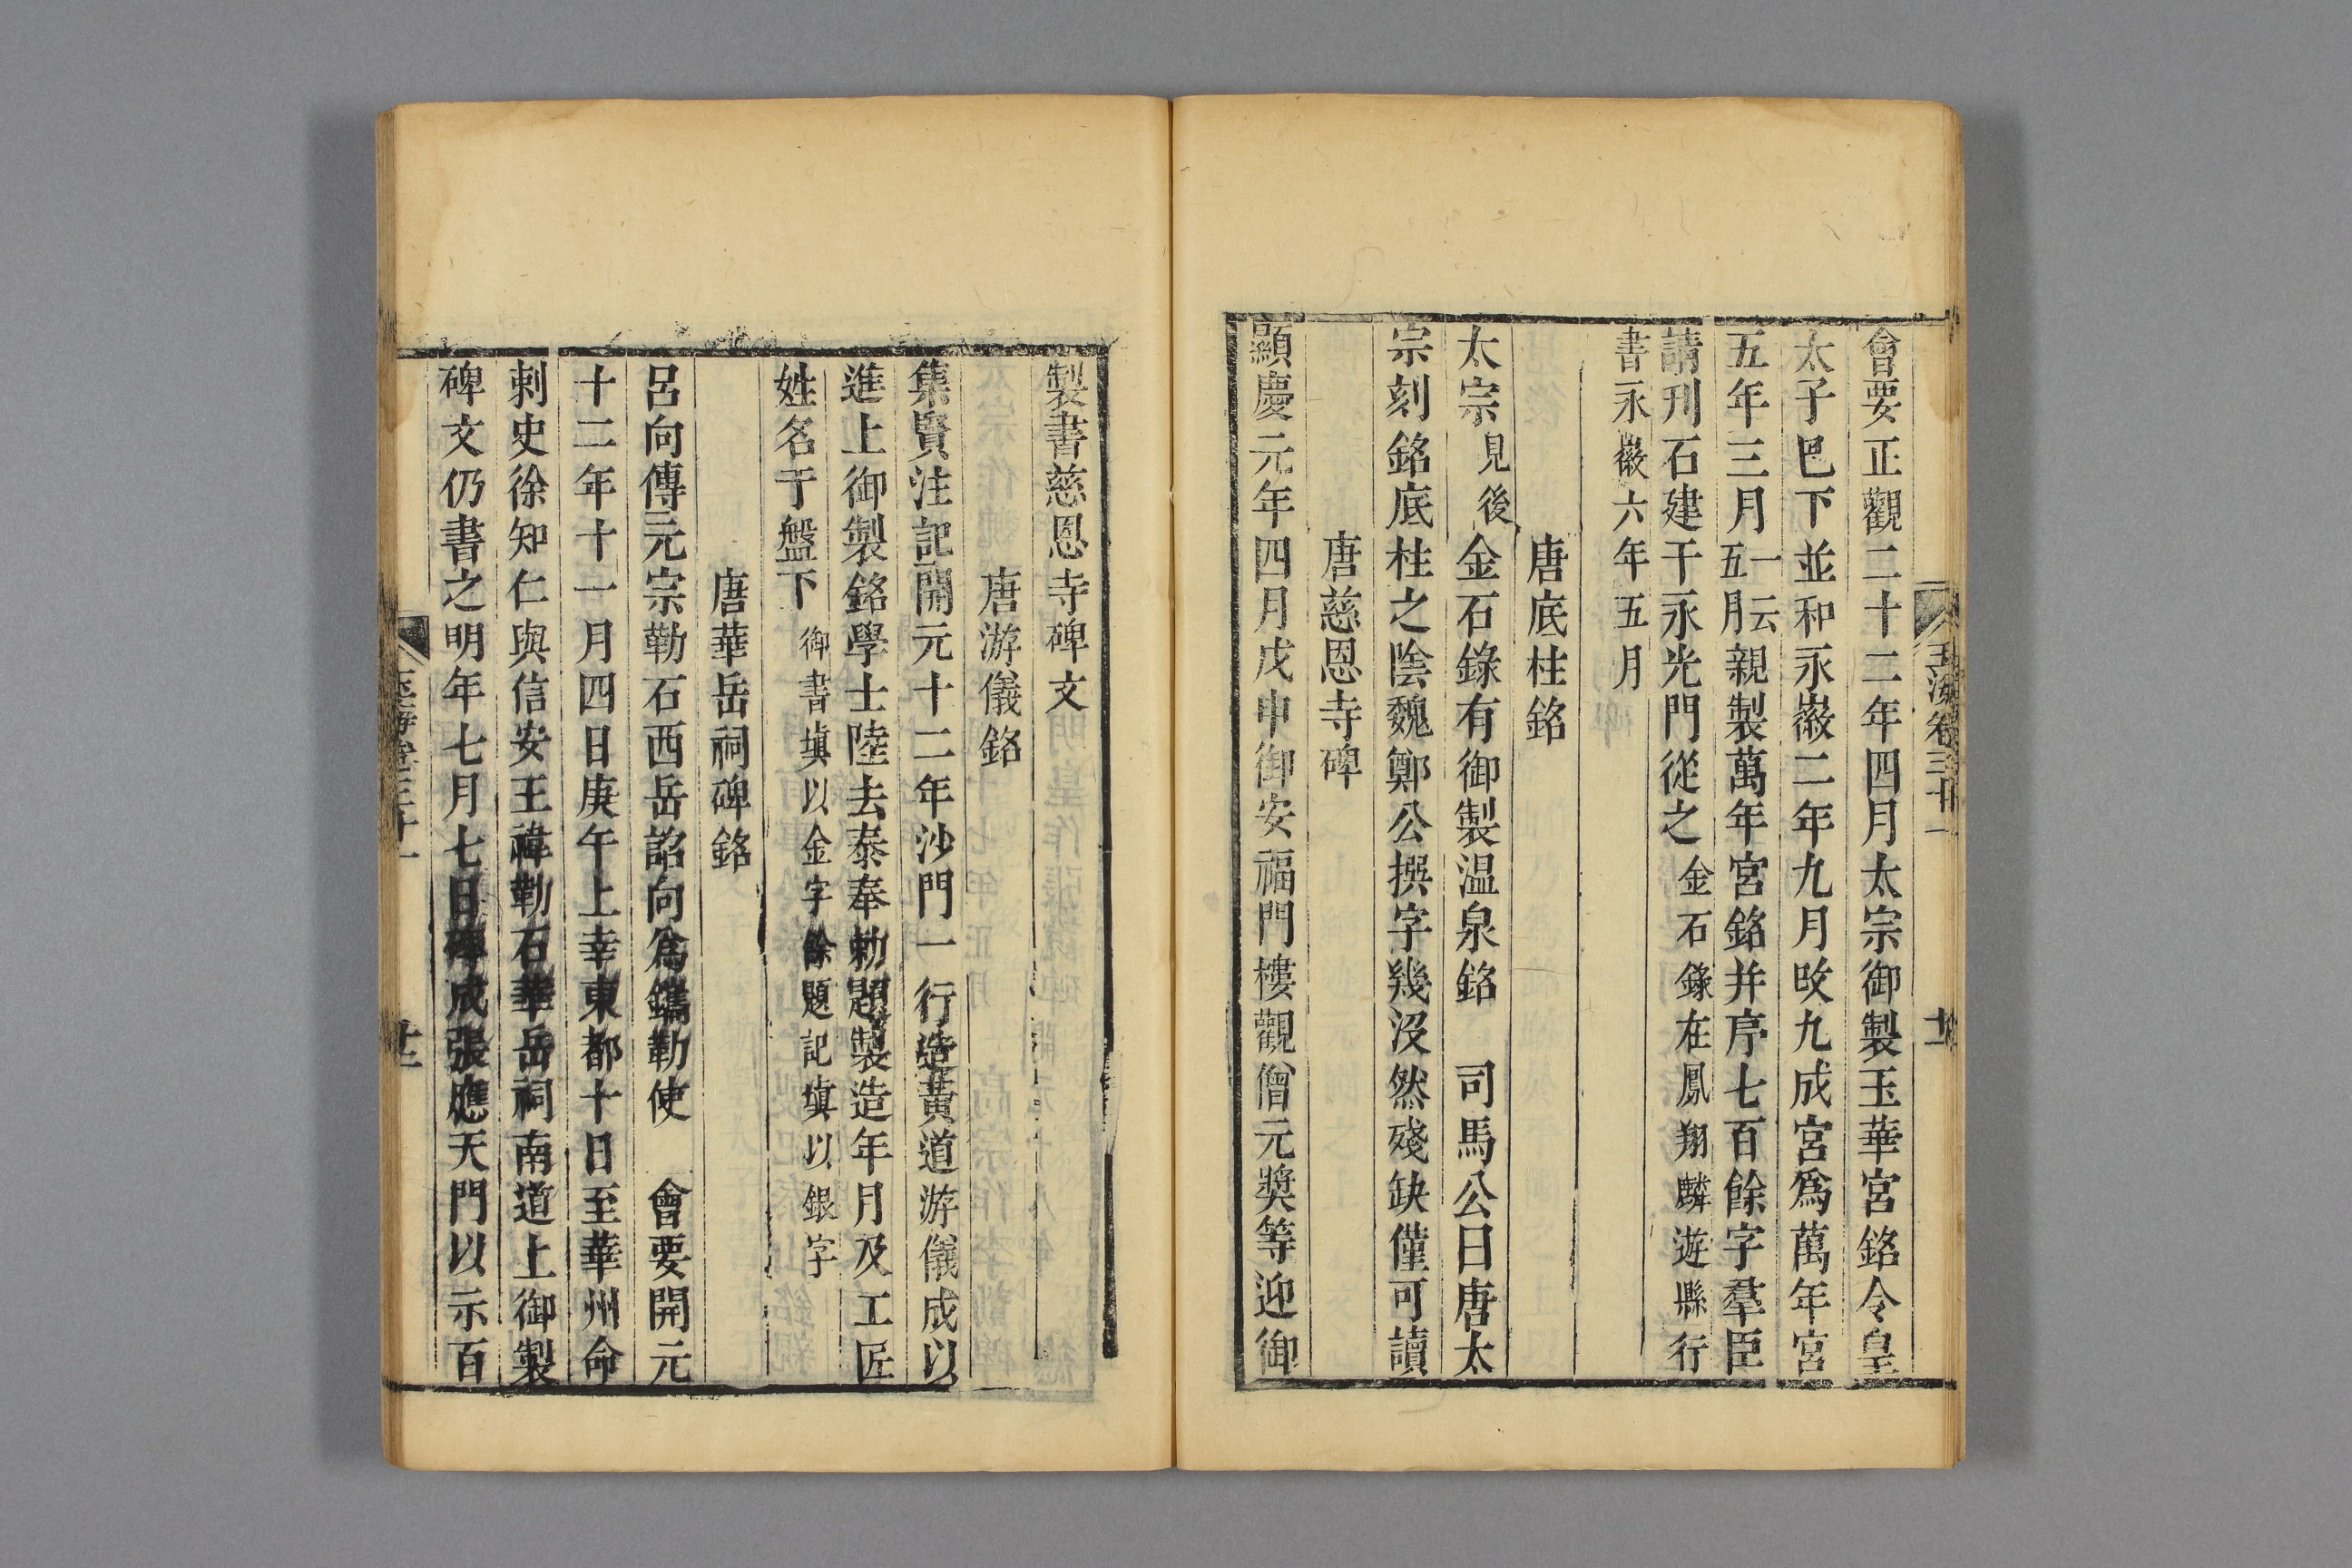 會要正觀二十二年四月太宗御製玉華宮銘令皇
太子巳下並和永徽二年九月改九成宮爲萬年宮
五年三月一云五月親製萬年宮銘并序七百餘字羣臣
請刋石建于永光門從之金石錄在鳳翔麟遊縣行
書永徽六年五月
唐底柱銘
太宗見後金石錄有御製温泉銘　司馬公曰唐太
宗刻銘底柱之陰魏鄭公撰字幾没然殘缺僅可讀
唐慈恩寺碑
顯慶元年四月戊申御安福門樓觀僧元奬等迎御
玉海卷三十一
製書慈恩寺碑文
唐游儀銘
集賢注記開元十二年沙門一行造黃道游儀成以
進上御製銘學士陸去泰奉勅題製造年月及工匠
姓名于盤下御書塡以金字餘題記塡以銀字
唐華岳祠碑銘
呂向傳元宗勒石西岳詔向爲鐫勒使　會要開元
十二年十一月四日庚午上幸東都十日至華州命
刺史徐知仁與信安王禕勒石華岳祠南道上御製
碑文仍書之明年七月七日碑成張應天門以示百
玉海卷三十一